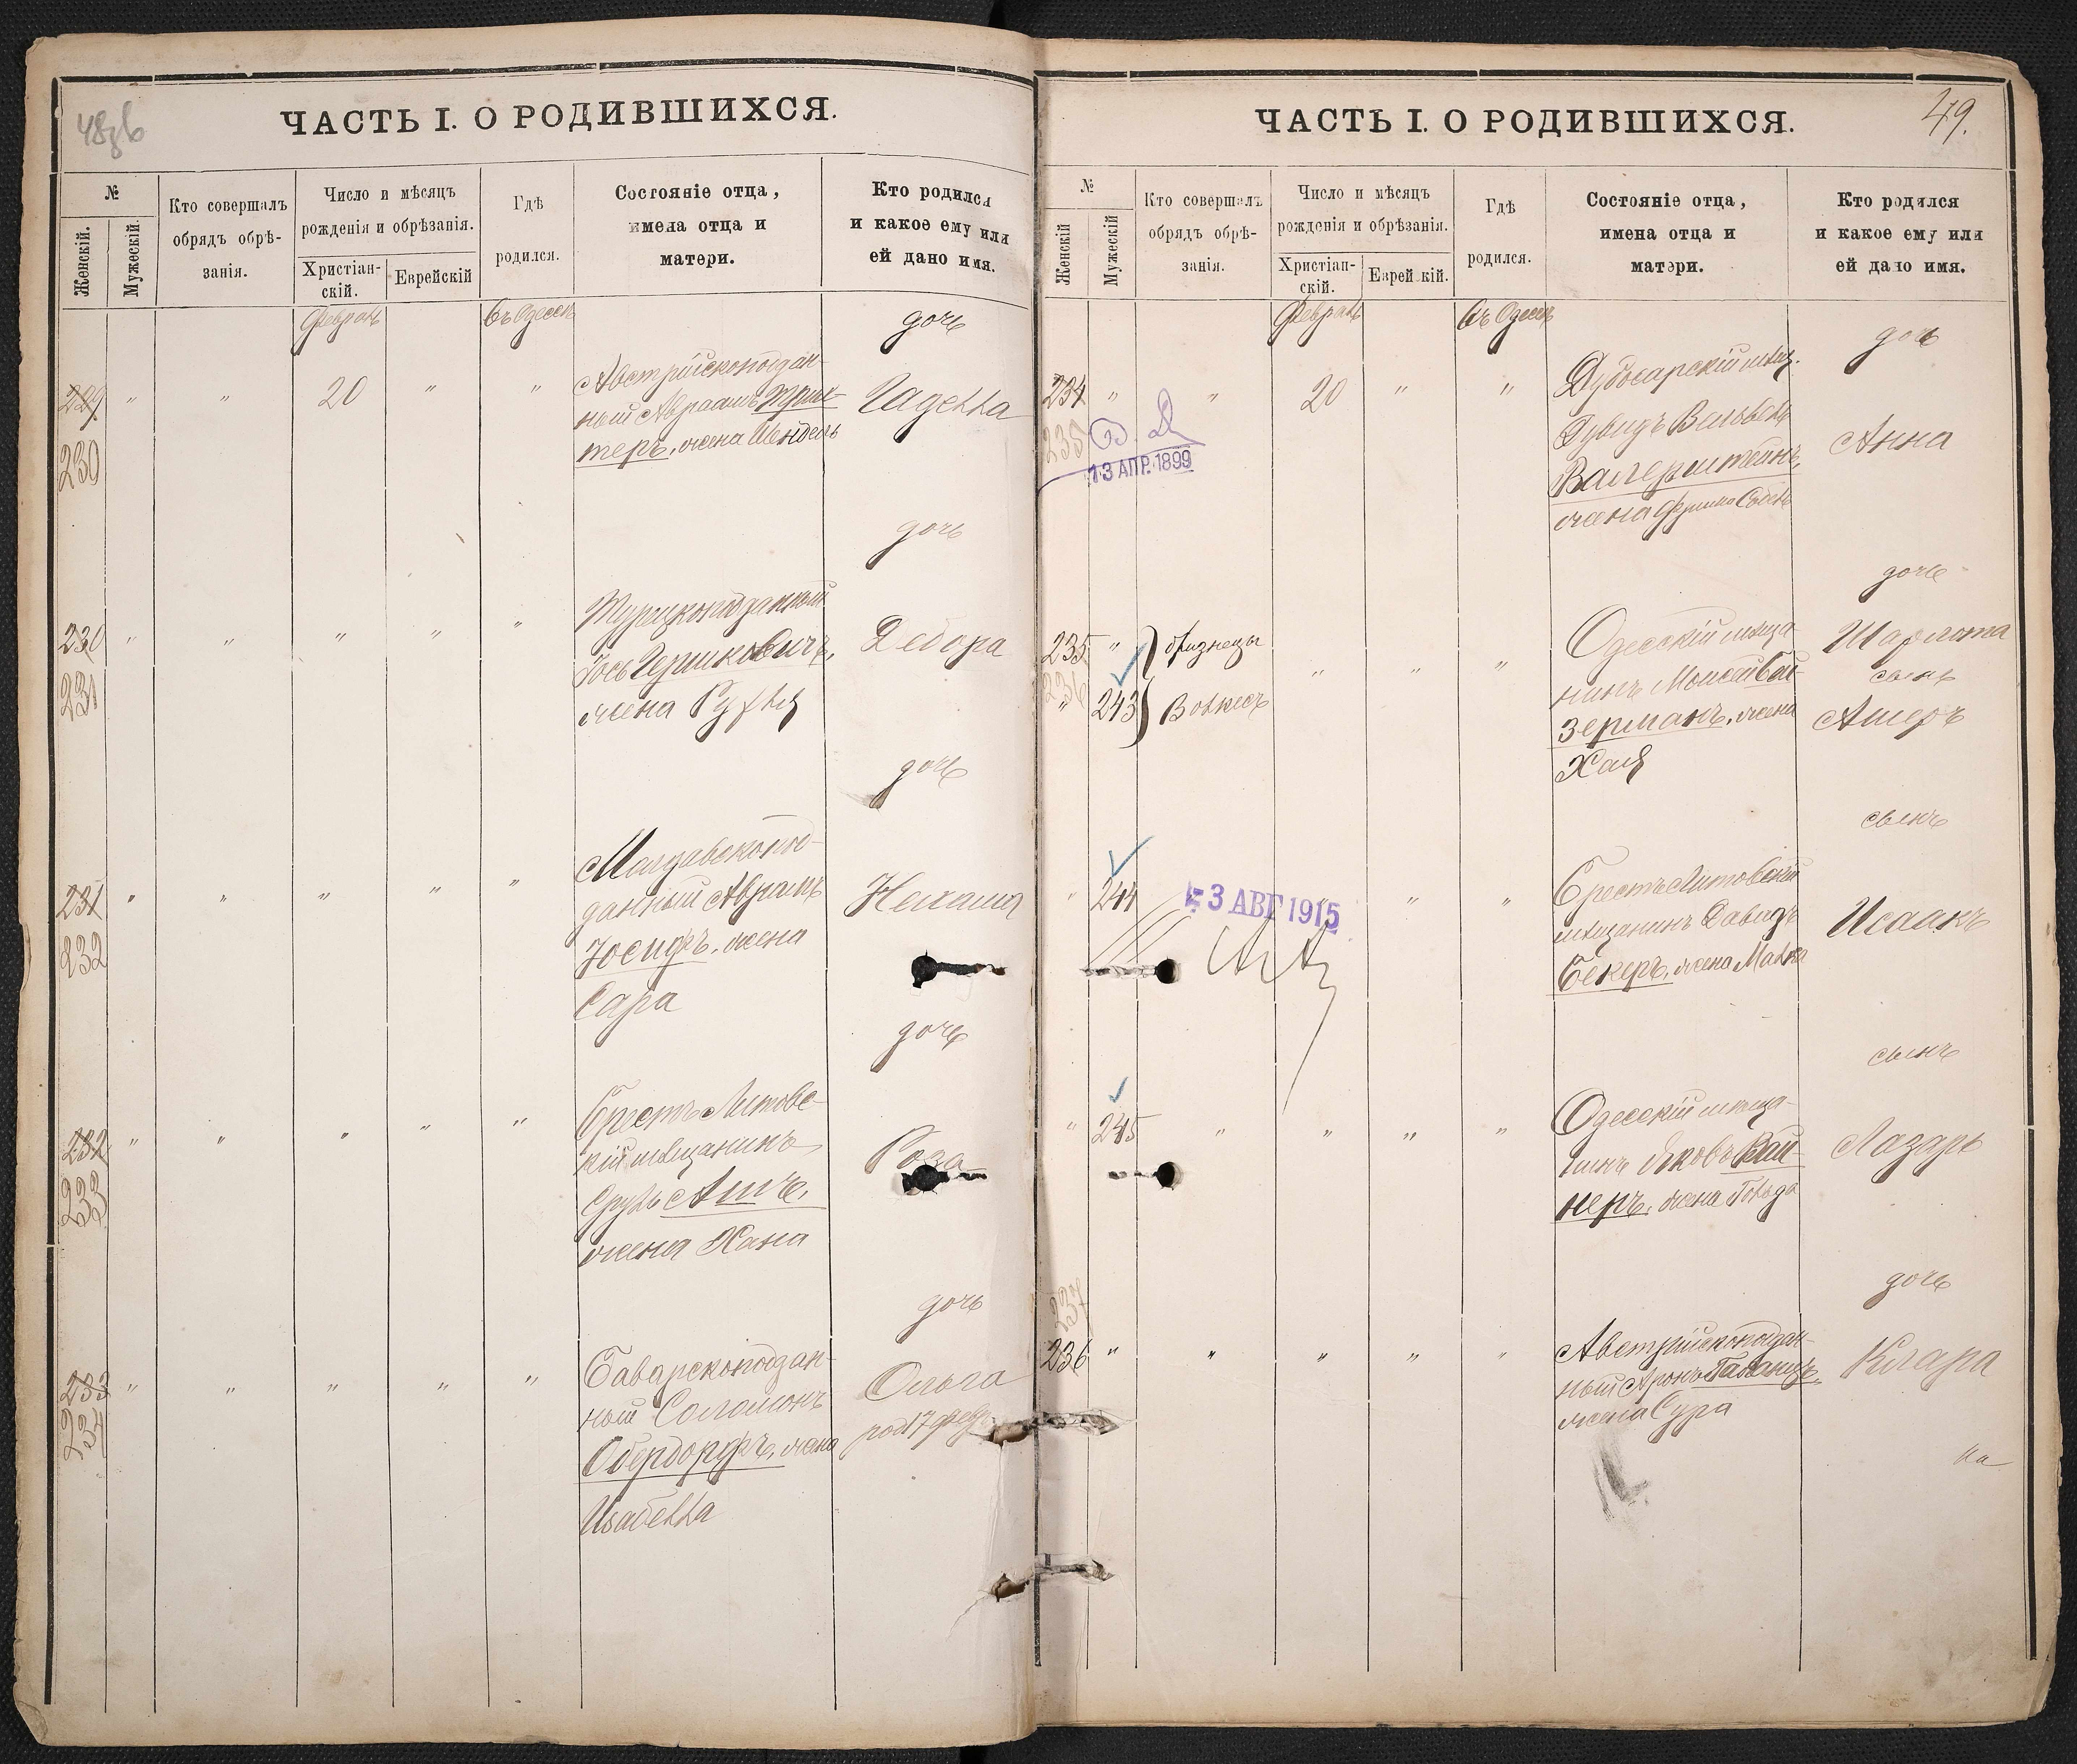 ЧАСТЬ I. О РОДИВШИХСЯ.
№
Женскій.
Мужескій.
Кто совершалъ
обрядъ обрѣ-
занія.
Число и мѣсяцъ
рожденія и обрѣзанія.
Христіан-
скій.
Еврейскій
Гдѣ
родился.
Состояніе отца,
имена отца и
матери.
Кто родился
и какое ему или
ей дано имя.
Февраль
въ Одессѣ
дочь
229
230
"
"
20
"
"
Австрійскоподан-
ный Авраамъ
теръ, жена Шендель
Гаделла
дочь
230
231
"
"
"
"
"
Турецкоподданный
Іось Гершковичъ,
жена Руфья
Дебора
дочь
231
232
"
"
"
"
"
Молдавскопод-
данный Аврамъ
Іосифъ, жена
Сара
Нехама
дочь
232
233
"
"
"
"
"
Брестъ Литовс-
кій мѣщанинъ
Сруль Ашъ,
жена Хана
Роза
дочь
233
234
"
"
"
"
"
Баварскоподан-
ный Соломонъ
Обердорфъ, жена
Изабелла
Ольга
род 17 февр.
ЧАСТЬ I. О РОДИВШИХСЯ.
49.
№
Женскій
Мужескій
Кто совершалъ
обрядъ обрѣ-
занія.
Число и мѣсяцъ
рожденія и обрѣзанія.
Христіан-
скій.
Еврейскій.
Гдѣ
родился.
Состояніе отца,
имена отца и
матери.
Кто родился
и какое ему или
ей дано имя.
Февраль
въ Одессѣ
дочь
234
235
"
"
20
"
"
13 АПР. 1899
Дубосарскій мѣщ.
Дувидъ Вольвовъ
Валерштейнъ,
жена Фрима Собель
Анна
дочь
235
236
"
"
243
близнецы
Вовкесъ
"
"
"
Одесскій мѣща
нинъ Моисей Бай-
зерманъ, жена
Хая
Шарлота
сынъ
Ашеръ
сынъ
"
244
3 АВГ 1915
"
"
"
Брестъ Литовскій
мѣщанинъ Давидъ
Бекеръ, жена Малка
Исаакъ
сынъ
"
245
"
"
"
"
Одесскій мѣща-
нинъ Яковъ Вай-
неръ, жена Гольда
Лазарь
дочь
237
236
"
"
"
"
"
Австрійскоподан-
ный Аронъ
жена Сура
Клара
на